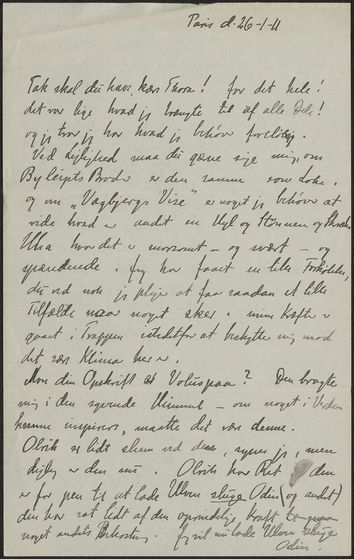 Paris d. 26-1-11
Tak skal du have, kære Thora! for det hele!
det var lige hvad jeg trængte til af alle Dele!
og jeg tror jeg har hvad jeg behøver foreløbig.
Ved Lejlighed maa du gerne sige mig, om
Byleipts Broder er den samme som Loke.
og om „Vegtams Vise" er noget jeg behøver at
vide hvad er andet en Ugl og Stønnen og
Uha hvor det er morsomt – og svært – og
spændende. Jeg har faaet en lille Forkølelse,
du ved nok jeg plejer at faa saadan et lille
Tilfælde naar noget sker. mine Kræfter er
gaaet i Trappen istedetfor at beskytte mig mod
det sære Klima her er.
Mon din Opskrift at Voluspaa? Den bragte
mig i den syvende Himmel – om noget i Verden
kunne inspirere, maatte det være denne.
Olrik er lidt slem ved den, synes jeg, men
dejlig er den nu. Olrik har Ret den
er for pen til at lade Ulven sluge Odin (og andet)
den har tabt lidt af den oprindelige Kraft
noget andets Bekostning. Jeg vil nu lade Ulven sluge
Odin